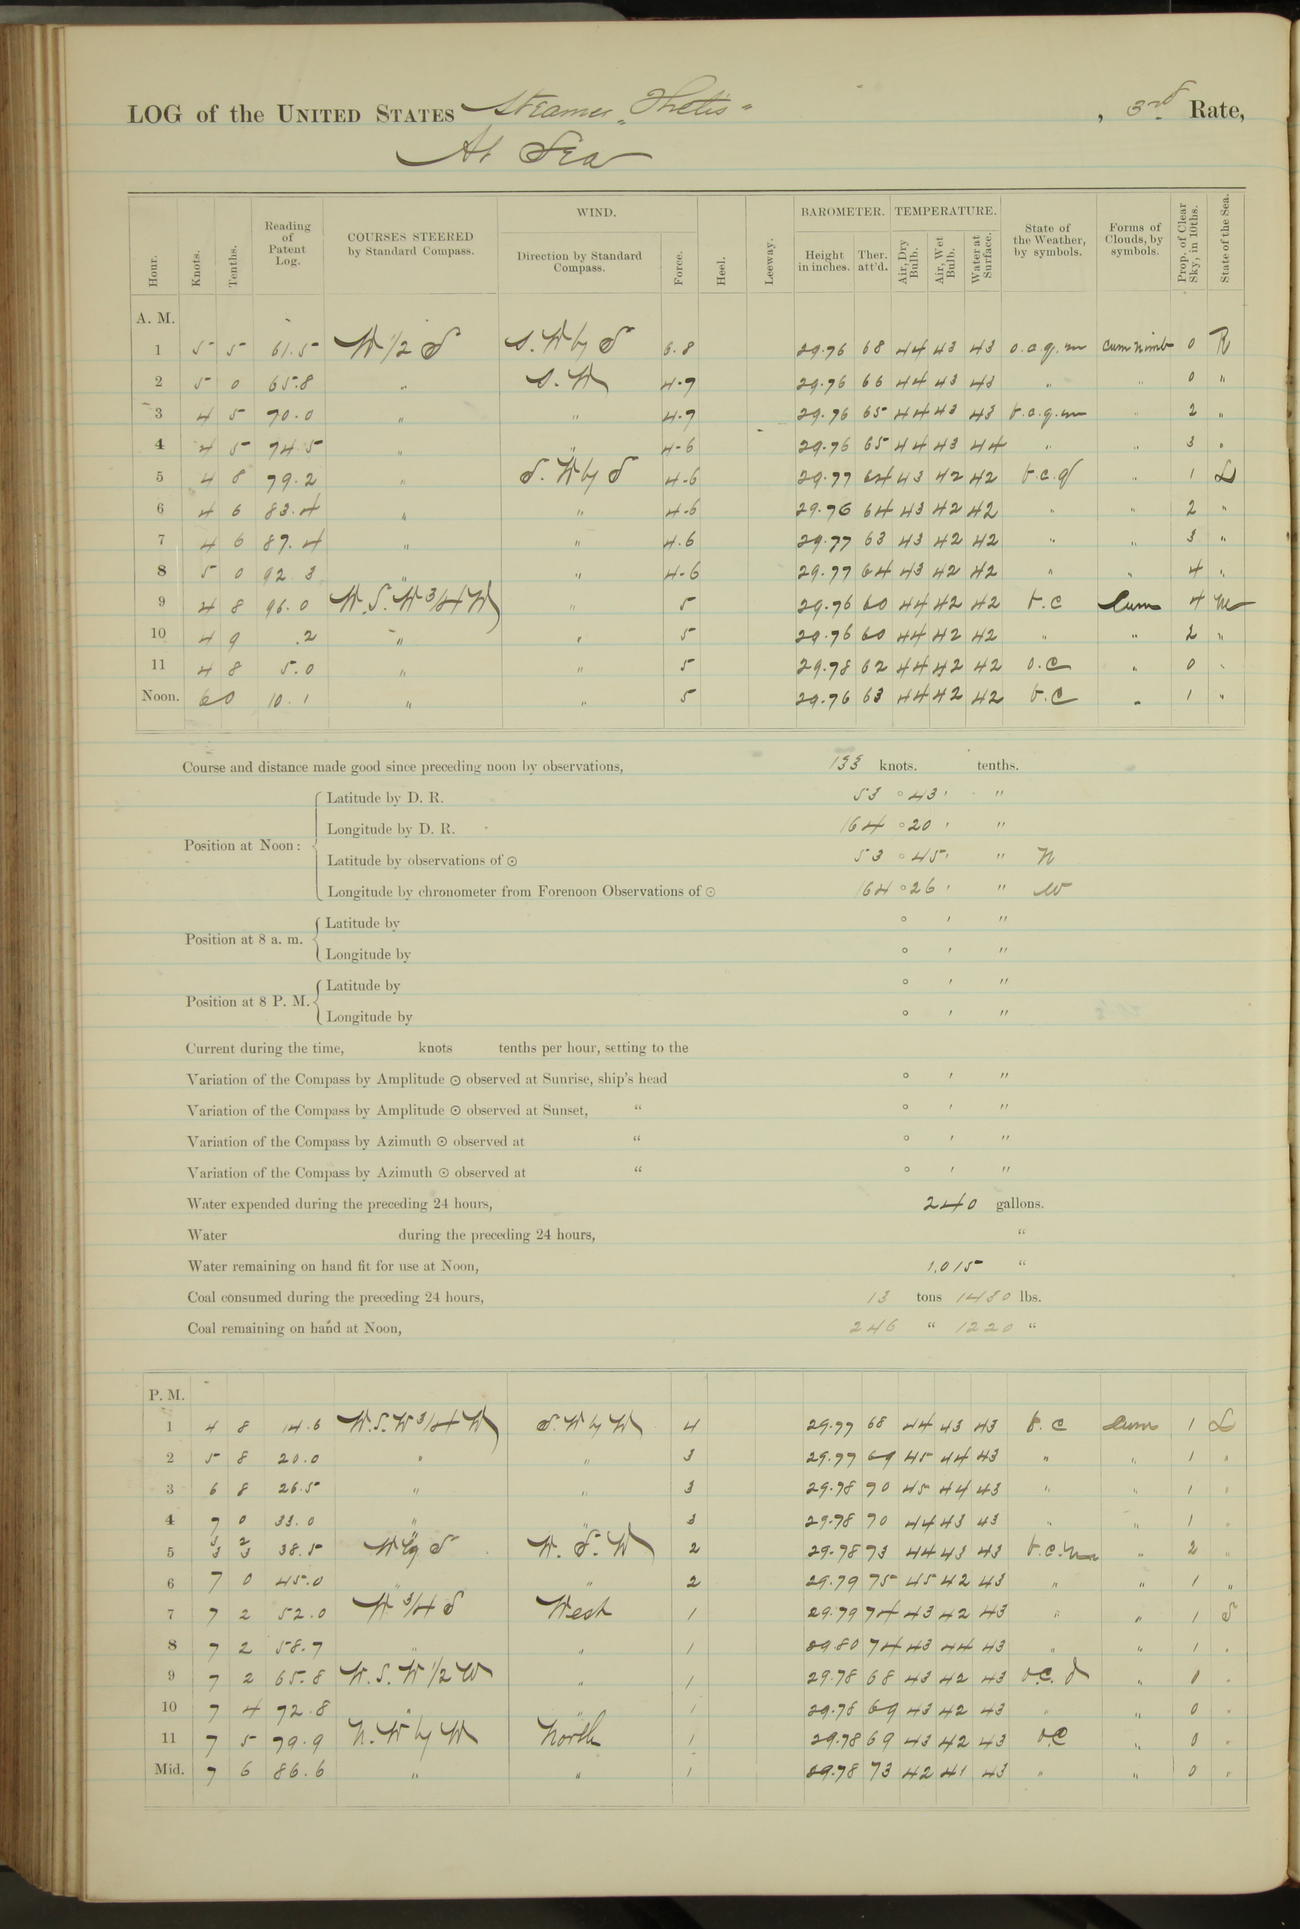 LOG of the UNITED STATES Steamer "Thetis" , 3rd Rate,
At Sea
Hour. Knots. Tenths. Reading of Patent Log. COURSES STEERED by Standard Compass. WIND. Direction by Standard Compass. Force. Heel. Leeway. BAROMETER. Height in inches. Ther. att'd. TEMPERATURE. Air, Dry Bulb. Air, Wet Bulb. Water at Surface. State of the Weather, by symbols. Forms of Clouds, by symbols. Prop. of Clear Sky, in 10ths. State of the Sea.
A. M.
1 5 5 61.5 W 1/2 S S. W by S 6.8 29.76 68 44 43 43 o.c.q.m Cum Nimb 0 R
2 5 0 65.8 " S. W 4-7 29.76 66 44 43 43 " " 0 "
3 4 5 70.0 " " 4-7 29.76 65 44 43 43 b.c.q.m " 2 "
4 4 5 74.5 " " 4-6 29.76 65 44 43 44 " " 3 "
5 4 8 79.2 " S. W by S 4-6 29.77 64 43 42 42 b.c.q " 1 L
6 4 6 83.4 " " 4-6 29.76 64 43 42 42 " " 2 "
7 4 6 87.4 " " 4-6 29.77 63 43 42 42 " " 3 "
8 5 0 92.3 " " 4-6 29.77 64 43 42 42 " " 4 "
9 4 8 96.0 W. S. W 3/4 W " 5 29.76 60 44 42 42 b.c Cum 4 M
10 4 9 .2 " " 5 29.76 60 44 42 42 " " 2 "
11 4 8 5.0 " " 5 29.78 62 44 42 42 o.c " 0 "
Noon. 6 0 10.1 " " 5 29.76 63 44 42 42 b.c " 1 "
Course and distance made good since preceding noon by observations, 133 knots. tenths.
Latitude by D. R. 53 ° 43 ' "
Longitude by D. R. 164 ° 20 ' "
Position at Noon: Latitude by observations of ☉ 53 ° 45 ' " N
Longitude by chronometer from Forenoon Observations of ☉ 164 ° 26 ' " W
Latitude by ° ' "
Position at 8 a. m.
Longitude by ° ' "
Latitude by ° ' "
Position at 8 P. M.
Longitude by ° ' "
Current during the time, knots tenths per hour, setting to the
Variation of the Compass by Amplitude ☉ observed at Sunrise, ship's head ° ' "
Variation of the Compass by Amplitude ☉ observed at Sunset, " ° ' "
Variation of the Compass by Azimuth ☉ observed at " ° ' "
Variation of the Compass by Azimuth ☉ observed at " ° ' "
Water expended during the preceding 24 hours, 240 gallons.
Water during the preceding 24 hours, "
Water remaining on hand fit for use at Noon, 1,015 "
Coal consumed during the preceding 24 hours, 13 tons 1430 lbs.
Coal remaining on hand at Noon, 246 " 1220 "
P. M.
1 4 8 14.6 W. S. W 3/4 W S. W by W 4 29.77 68 44 43 43 b.c Cum 1 L
2 5 8 20.0 " " 3 29.77 69 45 44 43 " " 1 "
3 6 8 26.5 " " 3 29.78 70 45 44 43 " " 1 "
4 7 0 33.0 " " 3 29.78 70 44 43 43 " " 1 "
5 38.5 W by S W. S. W 2 29.78 73 44 43 43 b.c.m " 2 "
6 7 0 45.0 " " 2 29.79 75 45 42 43 " " 1 "
7 7 2 52.0 W 3/4 S West 1 29.79 74 43 42 43 " " 1 S
8 7 2 58.7 " " 1 29.80 74 43 44 43 " " 1 "
9 7 2 65.8 W. S. W 1/2 W " 1 29.78 68 43 42 43 o.c. d " 0 "
10 7 4 72.8 " " 1 29.78 69 43 42 43 " " 0 "
11 7 5 79.9 N. W by W North 1 29.78 69 43 42 43 o.c " 0 "
Mid. 7 6 86.6 " " 1 29.78 73 42 41 43 " " 0 "